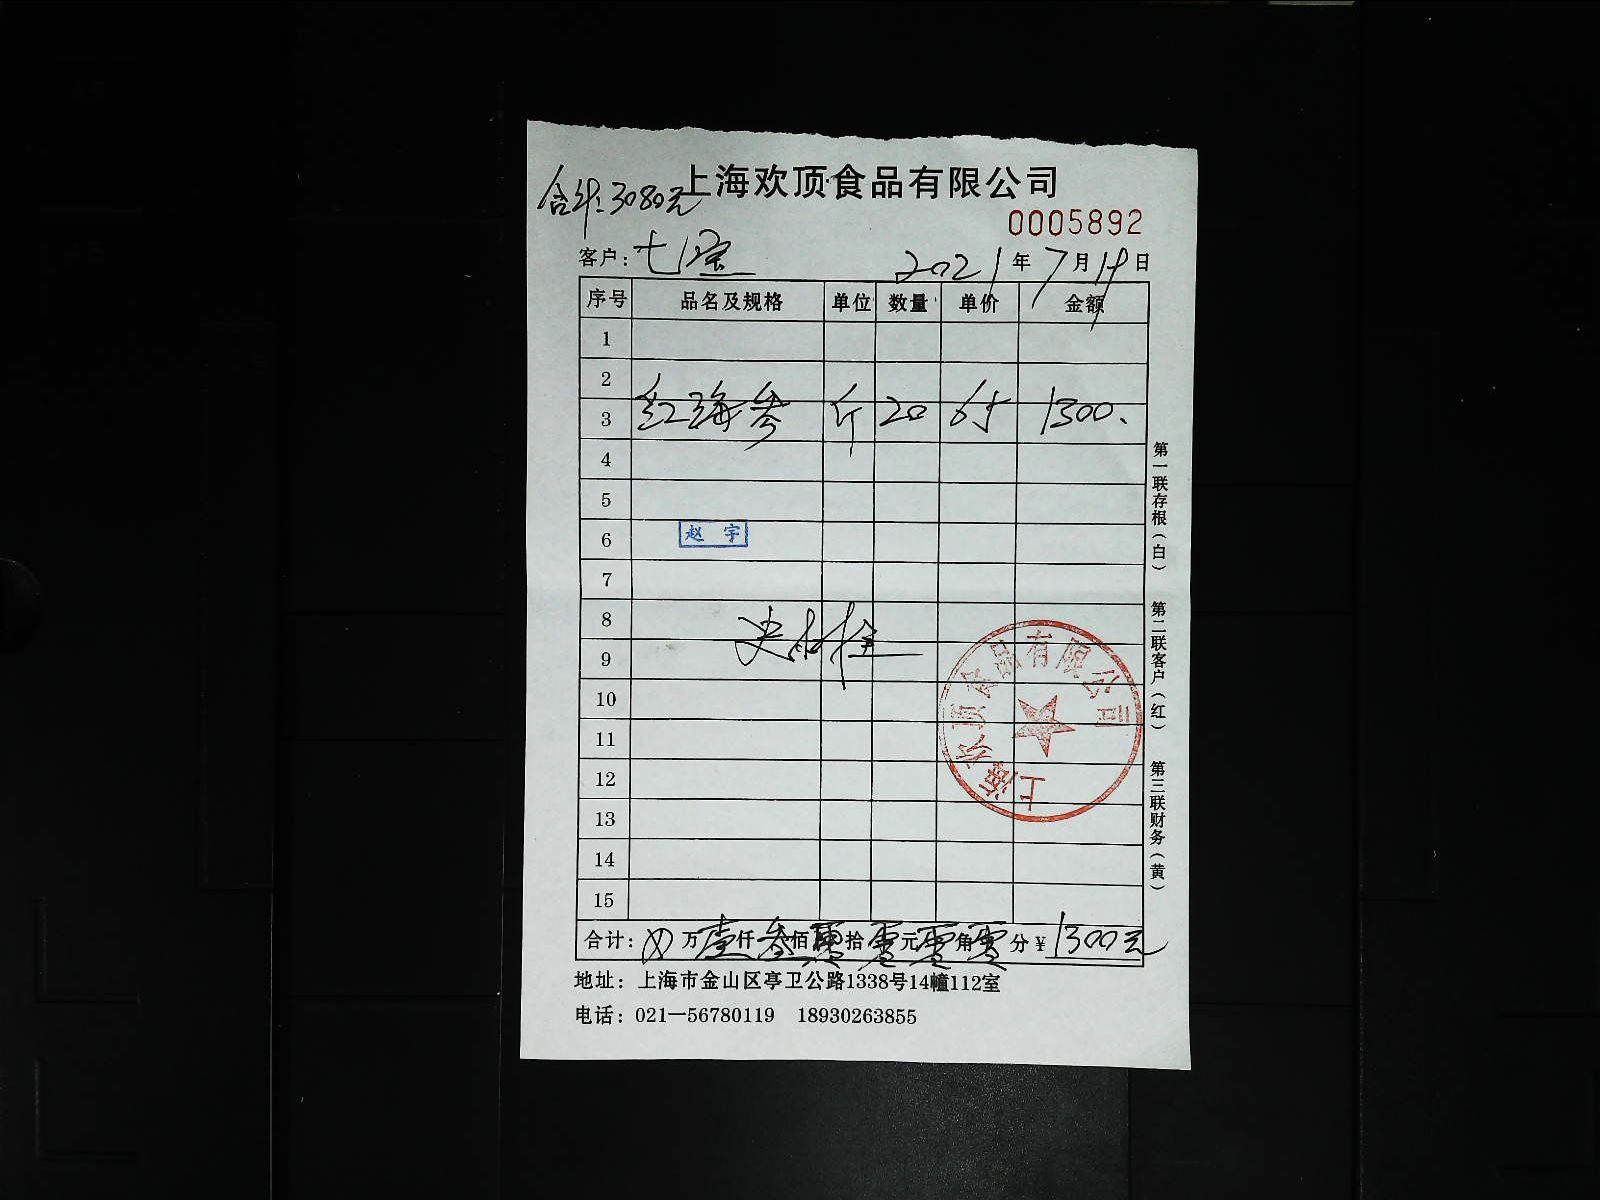 上海欢顶食品有限公司
合计:3080元
0005892
客户:七宝 2021年7月19日
序号 品名及规格 单位 数量 单价 金额
1
2
3 红海参 斤 20 65 1300.
4
5
6 赵 宇
7
8
9
10
11
12
13
14
15
上海欢顶食品有限公司
合计: 万壹仟叁佰零拾零元零角零分¥1300元
地址:上海市金山区亭卫公路1338号14幢112室
电话:021—56780119 18930263855
第一联存根(白) 第二联客户(红) 第三联财务(黄)